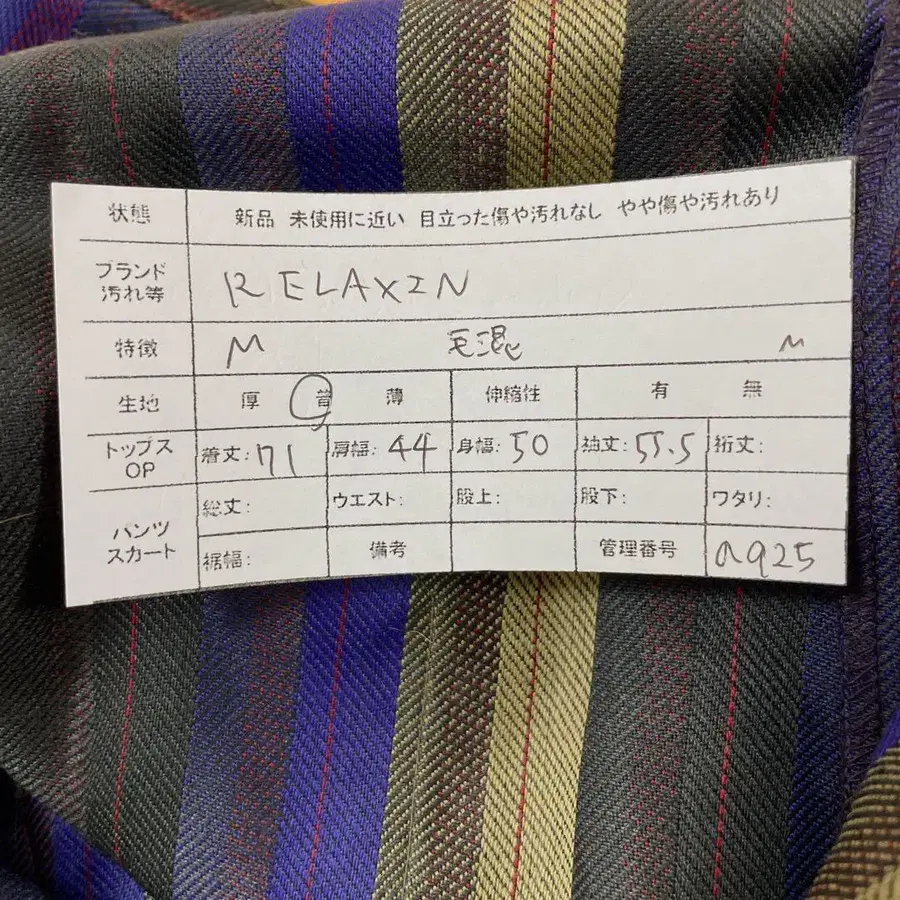 状態 新品 未使用に近い 目立った傷や汚れなし やや傷や汚れあり
ブランド
汚れ等 RELAXIN
特徴 M 毛混 M
生地 厚 普 薄 伸縮性 有 無
トップス
OP 着丈: 71 肩幅: 44 身幅: 50 袖丈: 55.5 裄丈:
パンツ
スカート 総丈: ウエスト: 股上: 股下: ワタリ:
裾幅: 備考 管理番号 a925